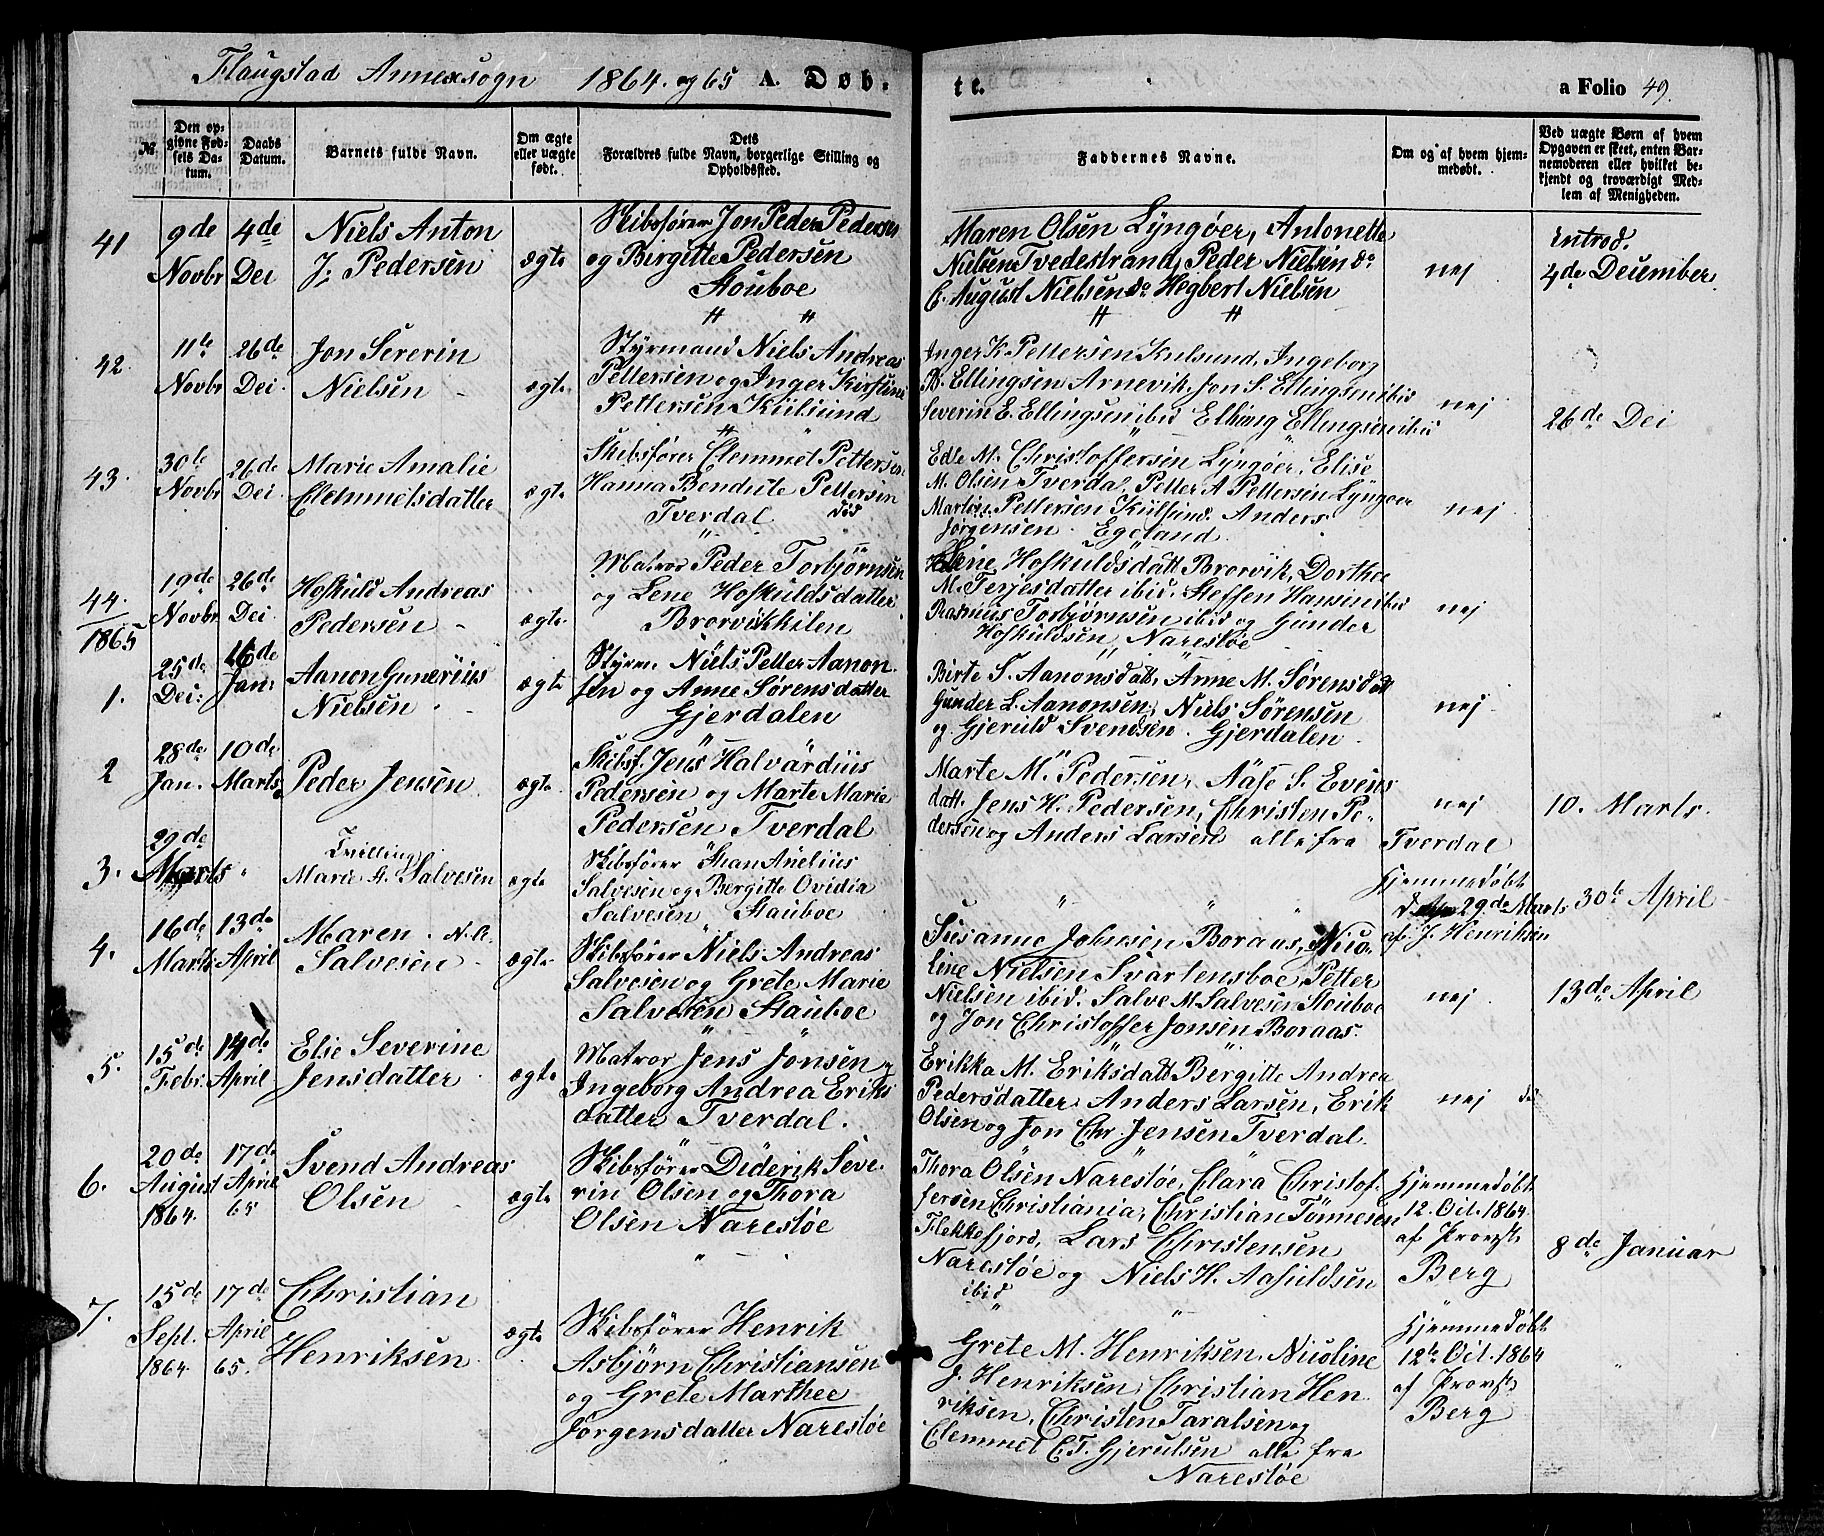 Flaugstad Annexsogn 1864. og 65 A. Døb-
te.
a Folio 49.
№
Den op-
givne Fød-
sels Da-
tum.
Daabs
Datum.
Barnets fulde Navn.
Om ægte
eller uægte
født.
Dets
Forældres fulde Navn, borgerlige Stilling og
Opholdssted.
Faddernes Navne.
Om og af hvem hjem-
medøbt.
Ved uægte Børn af hvem
Opgaven er skeet, enten Bar-
nemoderen eller hvilket be-
kjendt og troværdigt Med-
lem af Menigheden.
41
9de
Novbr
4de
Dec
Niels Anton
J. Pedersen
ægte
Skibsfører Jon Peder Pedersen
og Birgitte Pedersen
Stouboe
Maren Olsen Lyngøer, Antonette
Nielsen Tvedestrand, Peder Nielsen do
C. August Nielsen do Hegbert Nielsen
nej
Introd.
4de December
42
11te
Novbr
26de
Dec.
Jon Severin
Nielsen
ægte
Styrmand Niels Andreas
Pettersen og Inger Kirstine
Pettersen Kiilsund
Inger K. Pettersen Kulsund, Ingeborg
B. Ellingsen Arnevik, Jon S. Ellingsen ibid
Severin E. Ellingsen ibid Elling Ellingsen ibid
nej
26de Dec
43.
30te
Novbr
26de
Dec.
Marie Amalie
Clemmetsdatter
ægte
Skibsfører Clemmet Pettersen
Hanna Bendicte Pettersen
Tverdal
Edle M. Christoffersen Lyngøer, Elise
M. Olsen Tverdal, Petter A Pettersen Lyngøer
Martin Pettersen Kulsund. Anders
Jørgensen Egeland
nej.
44.
19de
Novbr
26de
Dec.
Hofkuld Andreas
Pedersen
ægte
Matros Peder Torbjørnsen
og Lene Hofkuldsdatter
Brorvikkilen
Lene Hofkuldsdatt Brorvik, Dorthee
M. Terjesdatter ibid, Steffen Hansen ibid
Rasmus Torbjørnsen ibid og Gunder
Hofkuldsen, Narestøe
nej
1865
1.
25de
Dec:
16de
Jan:
Aanon Gunerius
Nielsen
ægte
Styrm. Niels Petter Aanon-
sen og Anne Sørensdatter
Gjerdalen
Birte S. Aanonsdatt, Anne M. Sørensdatt
Gunder L. Aanonsen, Niels Sørensen
og Gjeruld Svendsen. Gjerdalen
nej
2
28de
Jan.
10de
Marts
Peder Jensen
ægte
Skibsf. Jens Halvardius
Pedersen og Marte Marie
Pedersen Tverdal
Marte M. Pedersen, Aase S. Evens
datt. Jens H. Pedersen, Christen Pe-
dersen og Anders Larsen alle fra
Tverdal
nej
10. Marts.
3.
29de
Marts
Tvilling
Marie A. Salvesen
ægte
Skibsfører
Salvesen og Bergitte Ovidia
Salvesen Stauboe
Hjemmedøbt
29de Marts
af J. Henriksen
30te April
4.
16de
Marts
13de
April
Maren
Salvesen
ægte
Skibsfører Niels Andreas
Salvesen og Grete Marie
Salvesen Stauboe
Susanne Johnsen Boraas, Nico-
line Nielsen Svartensboe, Petter
Nielsen ibid. Salve M Salvesen Stouboe
og Jon Christoffer Jonsen Boraas.
nej
13de April
5.
15de
Febr.
14de
April
Elie Severine
Jensdatter
ægte
Matros Jens Jonsen og
Ingeborg Andrea Eriks
datter Tverdal.
Erikka M. Eriksdatt Bergitte Andrea
Pedersdatter Anders Larsen, Erik
Olsen og Jon Chr. Jensen Tverdal.
nej
6.
20de
August
1864.
17de
April
65
Svend Andreas
Olsen
ægte
Skibsfører Diderik Seve-
rin Olsen og Thora
Olsen Narestøe
Thora Olsen Narestøe, Clara Christof-
fersen Christiania, Christian Tønnesen
Flekkefjord, Lars Christensen
Narestøe og Niels H. Aasuldsen
ibid
Hjemmedøbt
12. Oct. 1864.
af Provst
Berg
8de Januar
7.
15de
Sept.
1864
17de
April
65.
Christian
Henriksen
ægte
Skibsfører Henrik
Asbjørn Christiansen
og Grete Marthee
Jørgensdatter Narestøe
Grete M. Henriksen, Nicoline
J. Henriksen, Christian Hen
riksen, Christen Taralsen og
Clemmet C.T. Gjerulsen alle fra
Narestøe
Hjemmedøbt
12te Oct. 1864
af Provst
Berg